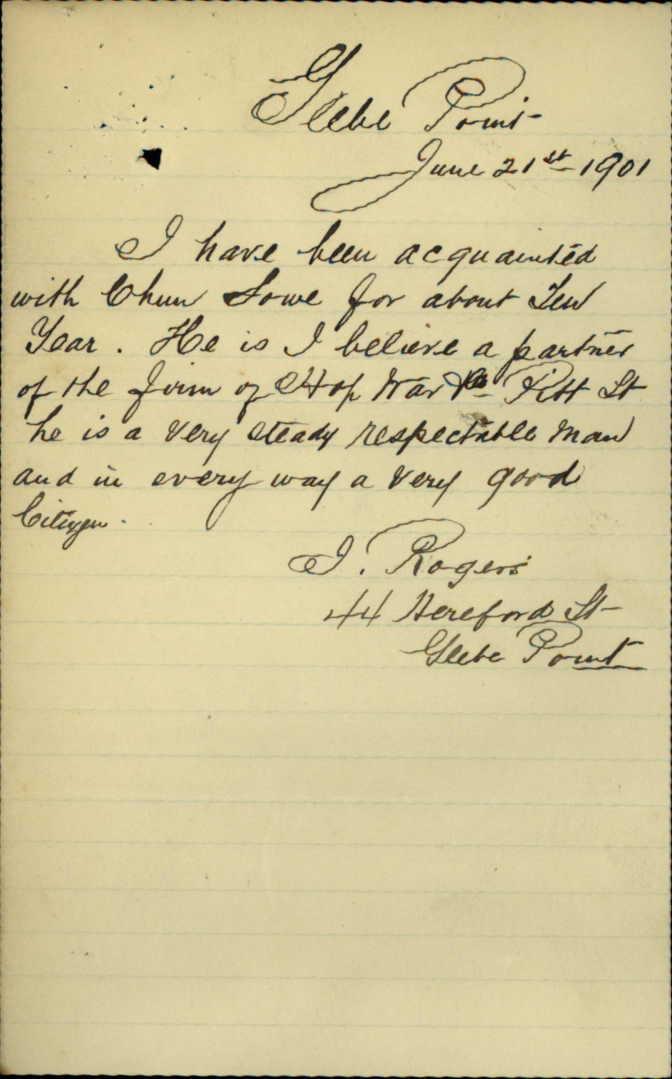 Glebe Point
June 21st 1901
I have been acquainted
with Chun Lowe for about Ten
Year. He is I believe a partner
of the firm of Hop War & Co Pitt St
he is a very steady respectable man
and in every way a very good
Citizen.
J. Rogers
44 Hereford St
Glebe Point